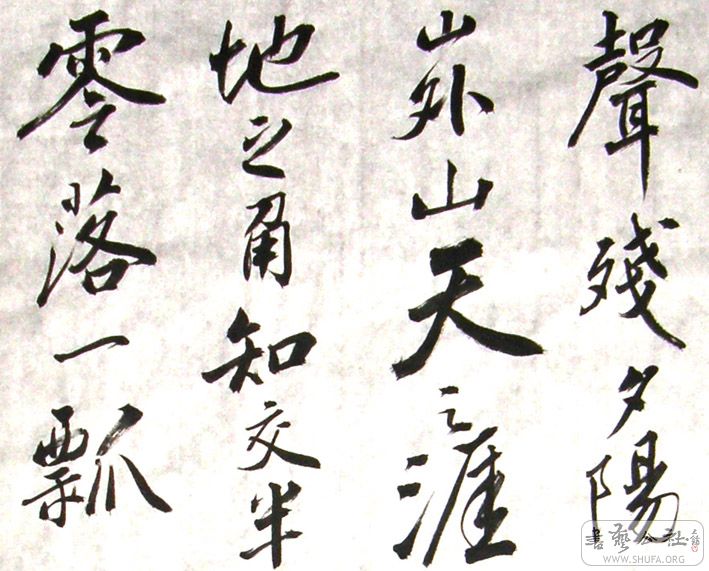 聲殘夕陽
山外山天之涯
地之角知交半
零落一瓢
書藝公社
WWW.SHUFA.ORG